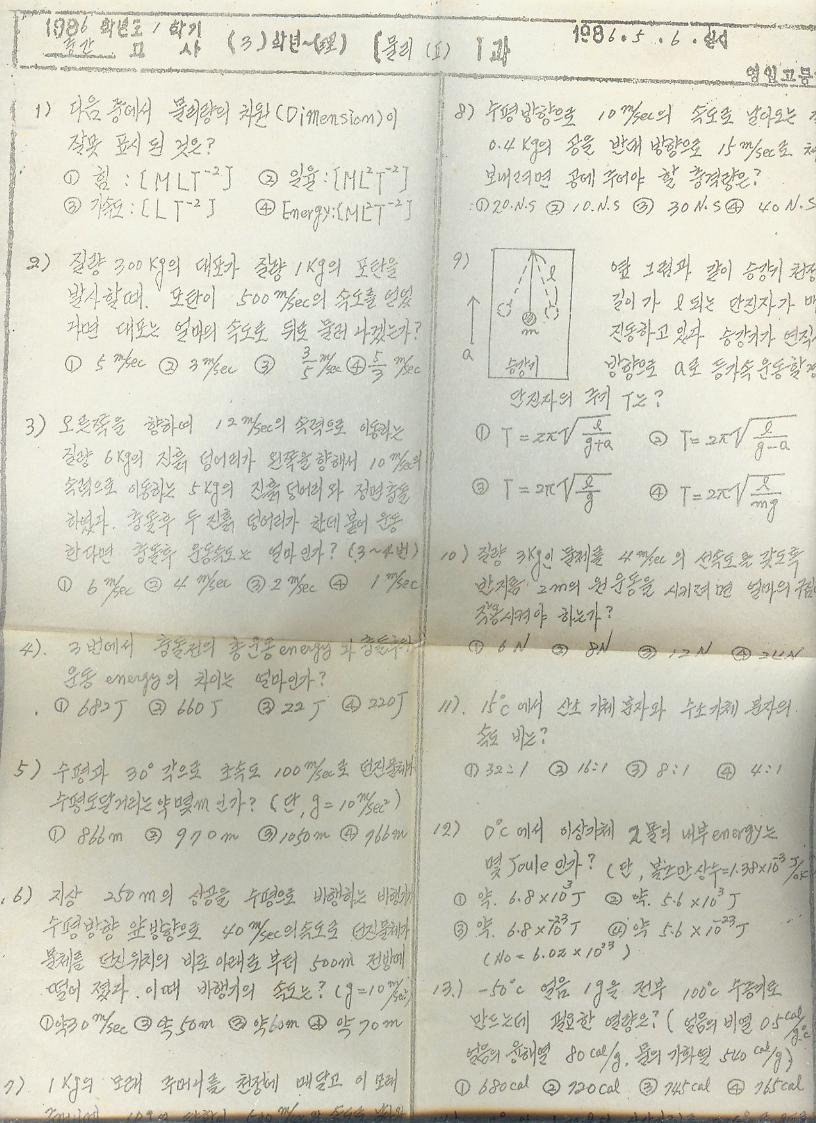 1986 학년도 1 학기
중간 고사 (3) 학년~(理) [물리 (I)] 1과
1986. 5. 6. 실시
영일고등
1) 다음 중에서 물리량의 차원(Dimension)이
잘못 표시 된 것은?
① 힘 : [MLT⁻²] ② 일율 : [ML²T⁻²]
③ 가속도 : [LT⁻²] ④ Energy:[ML²T⁻²]
2) 질량 300Kg의 대포가 질량 1Kg의 포탄을
발사할때. 포탄이 500 m/sec의 속도를 얻었
다면 대포는 얼마의 속도로 뒤로 물러 나겠는가?
① 5 m/sec ② 3 m/sec ③ 3/5 m/sec ④ 5/3 m/sec
3) 오른쪽을 향하여 12 m/sec의 속력으로 이동하는
질량 6Kg의 진흙 덩어리가 왼쪽을 향해서 10 m/sec의
속력으로 이동하는 5Kg의 진흙덩어리와 정면충돌
하였다. 충돌후 두 진흙 덩어리가 한데 붙어 운동
한다면 충돌후 운동속도는 얼마인가? (3~4번)
① 6 m/sec ② 4 m/sec ③ 2 m/sec ④ 1 m/sec
4). 3번에서 충돌전의 총운동 energy 과 충돌후의
운동 energy의 차이는 얼마인가?
① 682J ② 660J ③ 22J ④ 220J
5) 수평과 30° 각으로 초속도 100 m/sec로 던진물체가
수평도달거리는 약 몇m 인가? (단, g = 10 m/sec²)
① 866m ② 970m ③ 1050m ④ 766m
6) 지상 250m의 상공을 수평으로 비행하는 비행기가
수평방향 앞방향으로 40 m/sec의속도로 던진물체가
물체를 던진위치의 바로 아래로 부터 500m 전방에
떨어 졌다. 이때 비행기의 속도는? (g=10 m/sec²)
①약30 m/sec ②약 50m ③ 약60m ④ 약 70m
7) 1Kg의 모래 주머니를 천정에 매달고 이 모래
8) 수평방향으로 10 m/sec의 속도로 날아오는
0.4Kg의 공을 반대 방향으로 15 m/sec로 쳐
보내려면 공에 주어야 할 충격량은?
① 20.N.S ② 10.N.S ③ 30N.S ④ 40N.S
9)
옆 그림과 같이 승강기 천정
길이가 ℓ 되는 단진자가
진동하고 있다 승강기가 연직
방향으로 a로 등가속운동할
단진자의 주기 T는?
ℓ
m
a
승강기
① T = 2π√(ℓ/(g+a)) ② T = 2π√(ℓ/(g-a))
③ T = 2π√(ℓ/g) ④ T = 2π√(ℓ/mg)
10) 질량 3Kg인 물체를 4 m/sec의 선속도를 갖도록
반지름 2m의 원운동을 시키려면 얼마의 구심
작용시켜야 하는가?
① 6N ② 8N ③ 12N ④ 24N
11). 15°C에서 산소 기체 분자와 수소기체 분자의
속도 비는?
① 32:1 ② 16:1 ③ 8:1 ④ 4:1
12) 0°C에서 이상기체 2몰의 내부energy는
몇 Joule 인가? (단, 볼쯔만상수=1.38×10⁻²³ J/°K
① 약. 6.8×10³J ② 약. 5.6×10³J
③ 약. 6.8×10⁻²³J ④ 약 5.6×10⁻²³J
(No = 6.02×10²³)
13.) -50°C 얼음 1g을 전부 100°C 수증기로
만드는데 필요한 열량은? (얼음의 비열 0.5 cal/g.°C
얼음의 융해열 80 cal/g. 물의 기화열 540 cal/g)
① 680cal ② 720cal ③ 745cal ④ 765cal